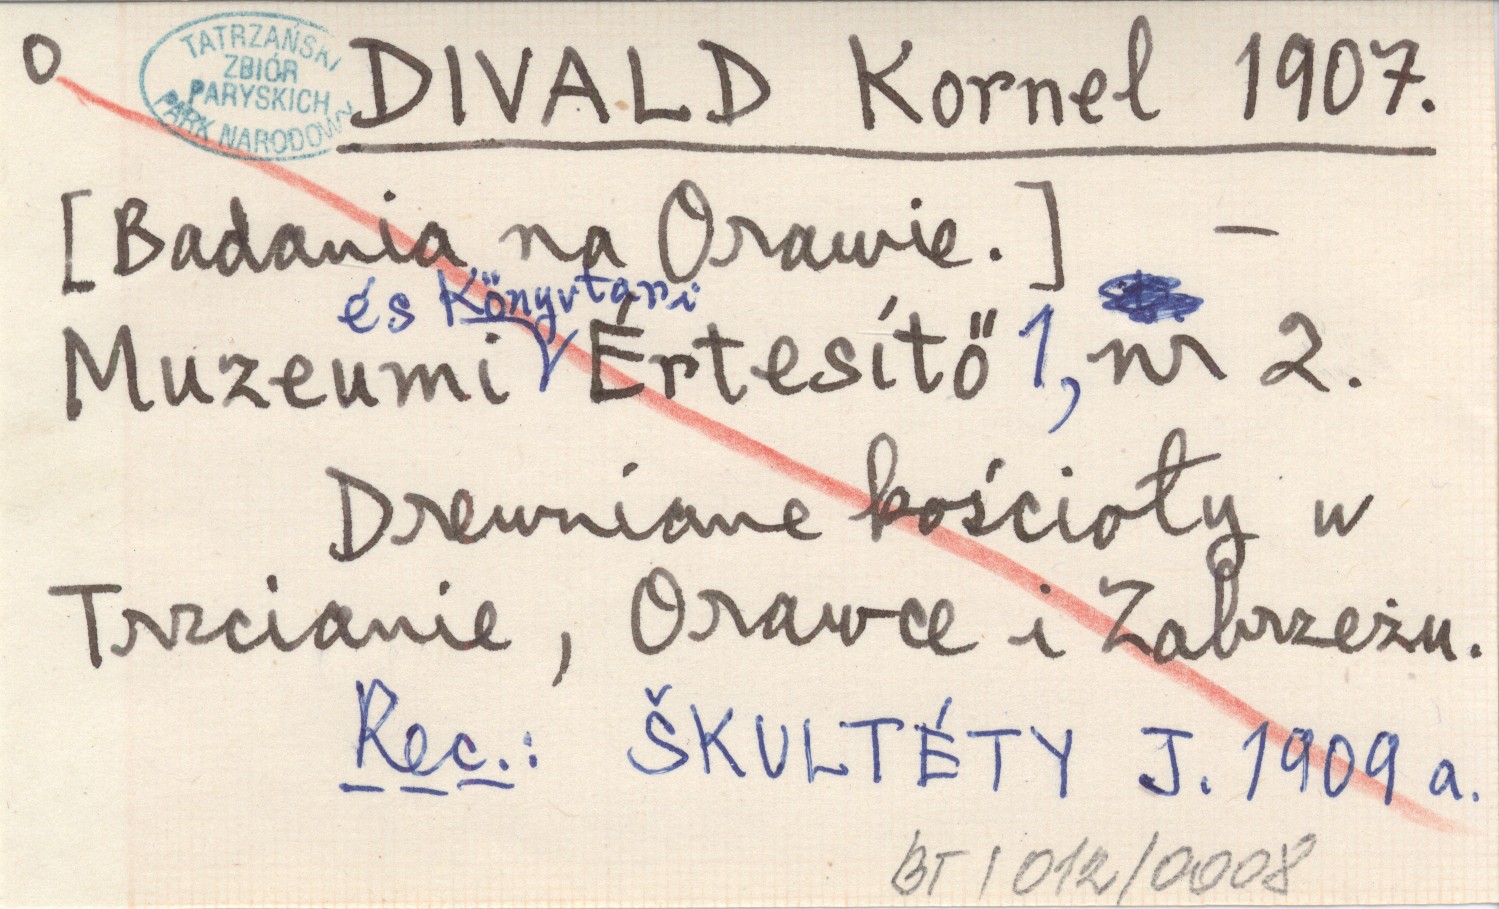 O
TATRZAŃSKI
ZBIÓR
PARYSKICH
PARK NARODOWY
DIVALD Kornel 1907.
[Badania na Orawie.] –
és Könyvtári
Muzeumi Értesítő 1, nr 2.
Drewniane kościoły w
Trzcianie, Orawce i Zabrzeżu.
Rec.: ŠKULTÉTY J. 1909 a.
BT I 012/0008